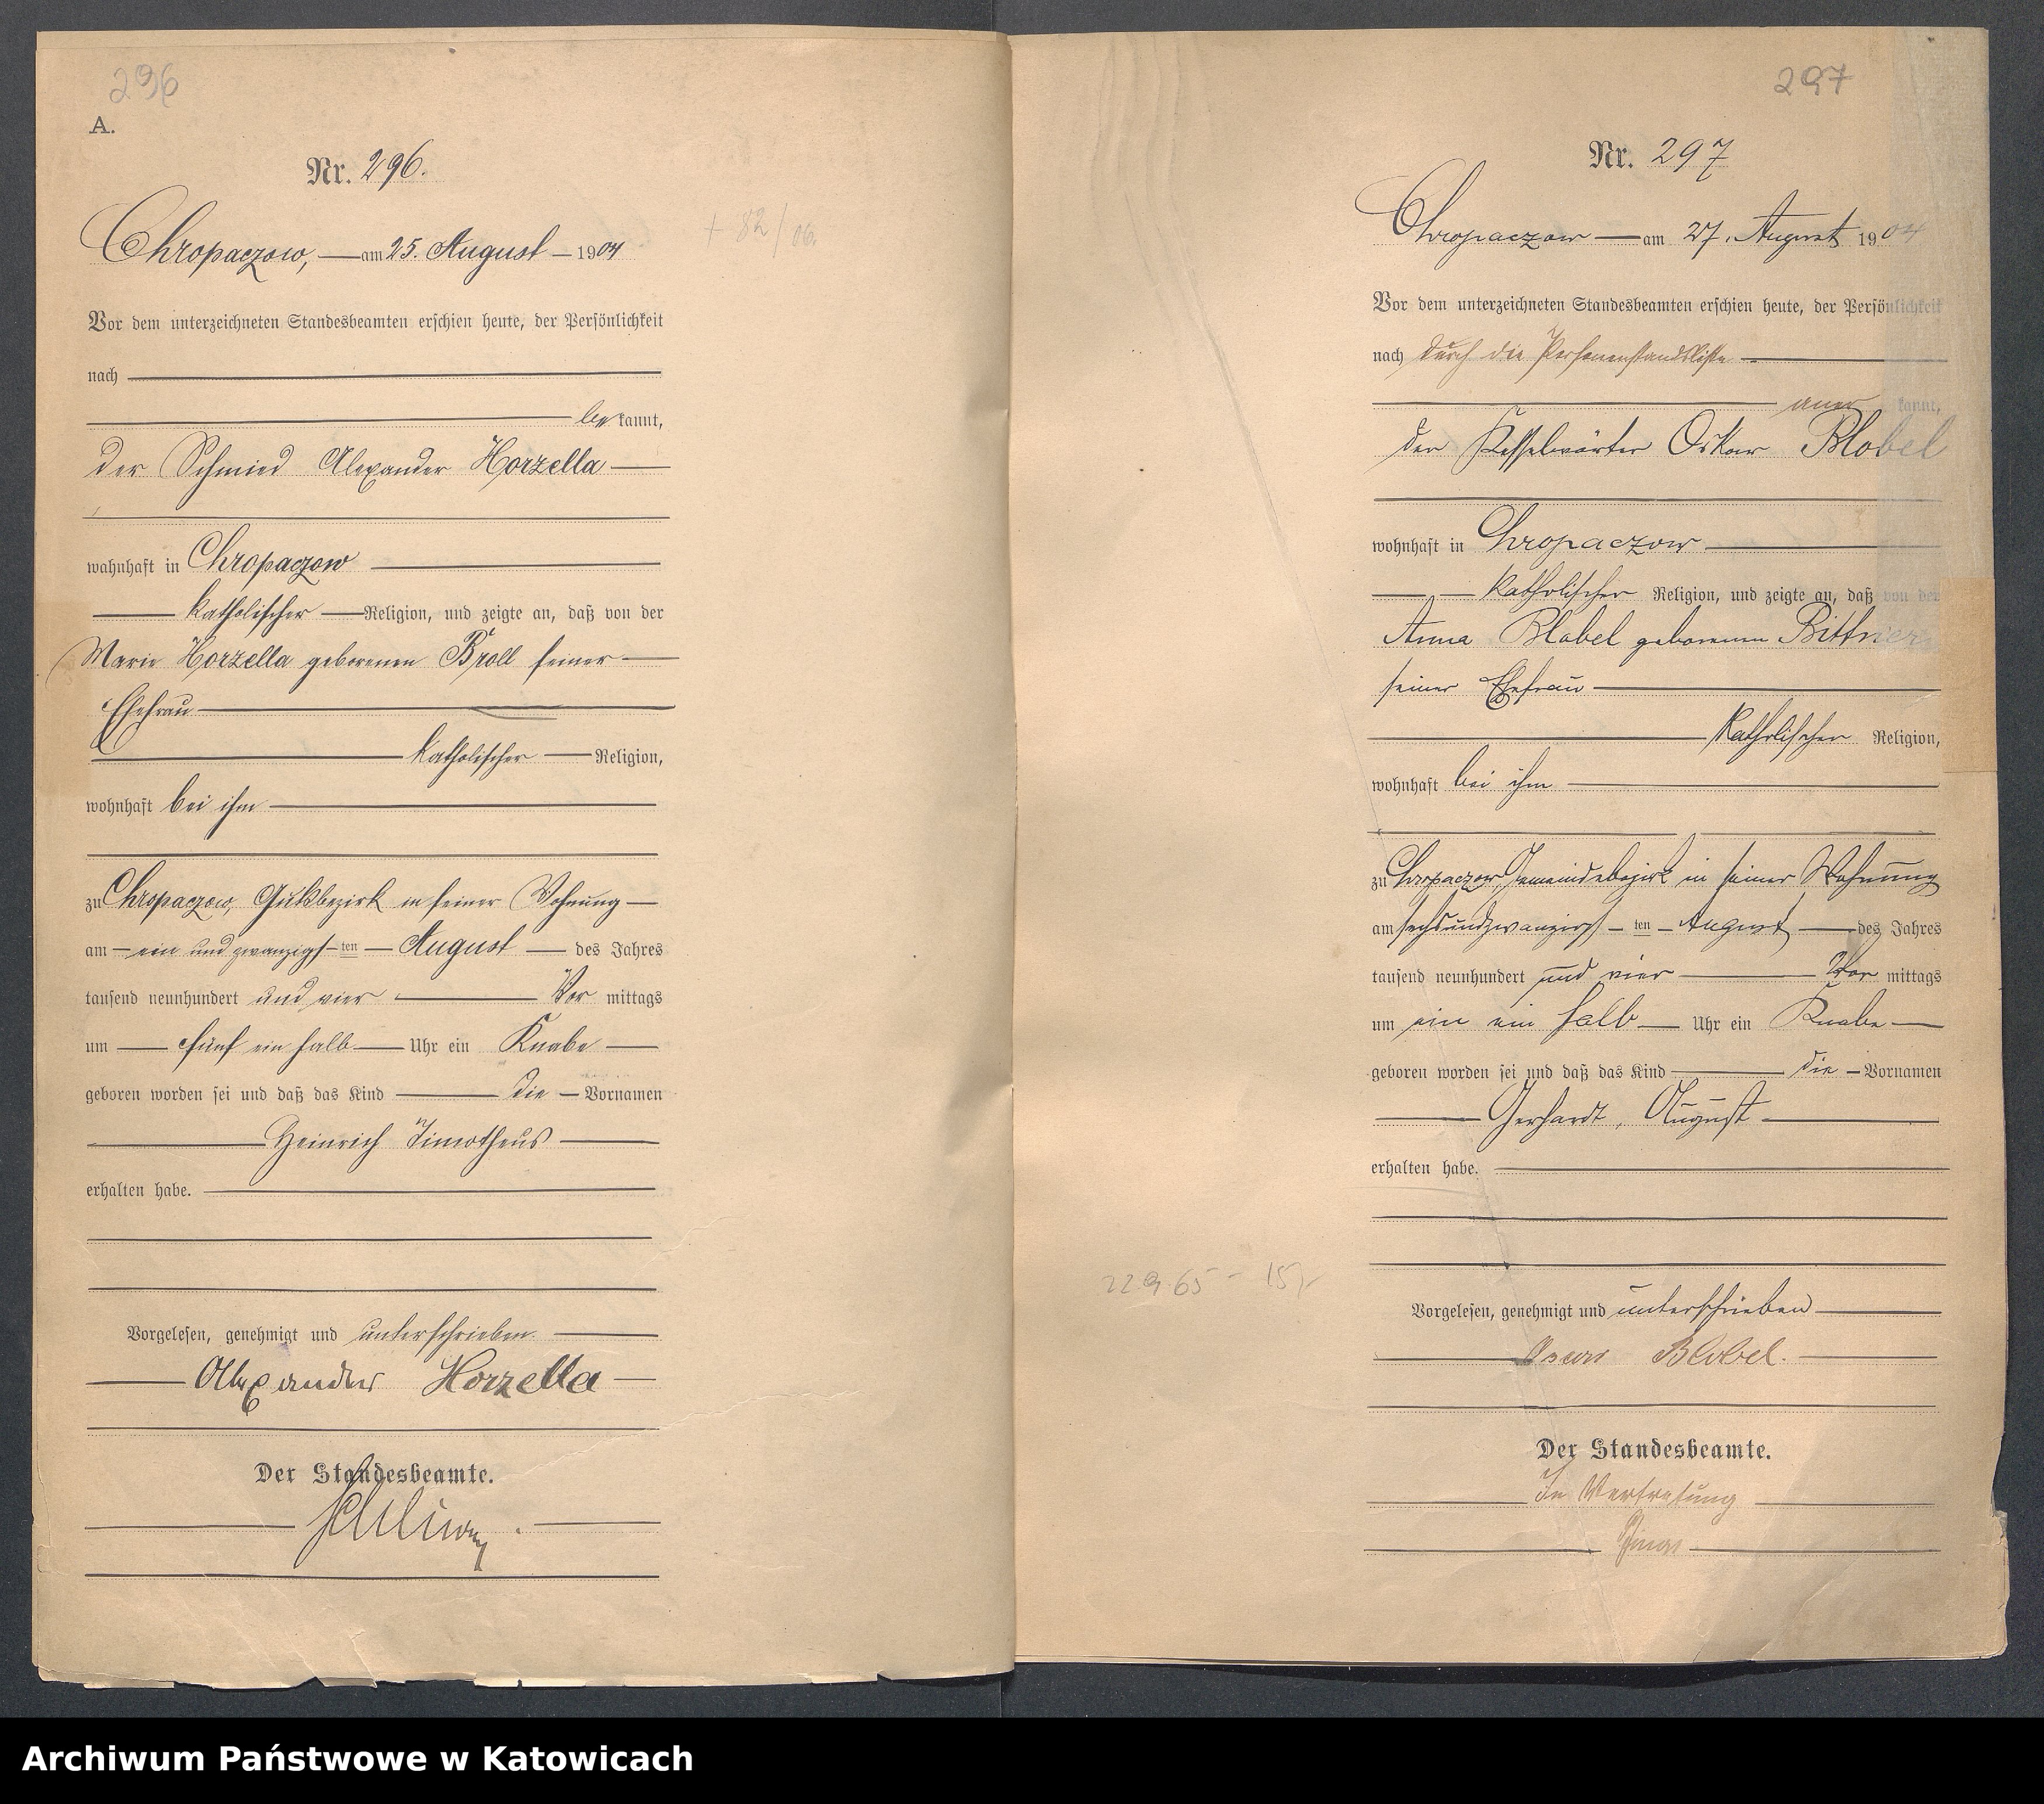 296
A.
Nr. 296.
+ 82/06.
Chropaczow, — am 25. August — 1904
Vor dem unterzeichneten Standesbeamten erschien heute, der Persönlichkeit
nach
be kannt,
der Schmied Alexander Horzella
wahnhaft in Chropaczow
katholischer — Religion, und zeigte an, daß von der
Marie Horzella geborenen Broll seiner
Ehefrau
katholischer — Religion,
wohnhaft bei ihm
zu Chropaczow, Gutsbezirk in seiner Wohnung
am — ein und zwanzigs — ten — August — des Jahres
tausend neunhundert und vier — Vor mittags
um — fünf ein halb — Uhr ein Knabe
geboren worden sei und daß das Kind — die — Vornamen
Heinrich Timotheus
erhalten habe.
Vorgelesen, genehmigt und unterschrieben.
Alexander Horzella
Der Standesbeamte.
297
Nr. 297
Chropaczow — am 27. August 1904
Vor dem unterzeichneten Standesbeamten erschien heute, der Persönlichkeit
nach durch die Personenstandsliste
aner kannt,
der Kesselwärter Oskar Blobel
wohnhaft in Chropaczow
katholischer Religion, und zeigte an, daß von der
Anna Blobel geborenen Bittner
seiner Ehefrau
katholischer Religion,
wohnhaft bei ihm
zu Chropaczow, Gemeindebezirk in seiner Wohnung
am sechsundzwanzigs — ten — August — des Jahres
tausend neunhundert und vier — Vor mittags
um ein ein halb — Uhr ein Knabe
geboren worden sei und daß das Kind — die — Vornamen
Gerhardt, August
erhalten habe.
22.9.65 - 15/-
Vorgelesen, genehmigt und unterschrieben
Oscar Blobel.
Der Standesbeamte.
In Vertretung
Archiwum Państwowe w Katowicach